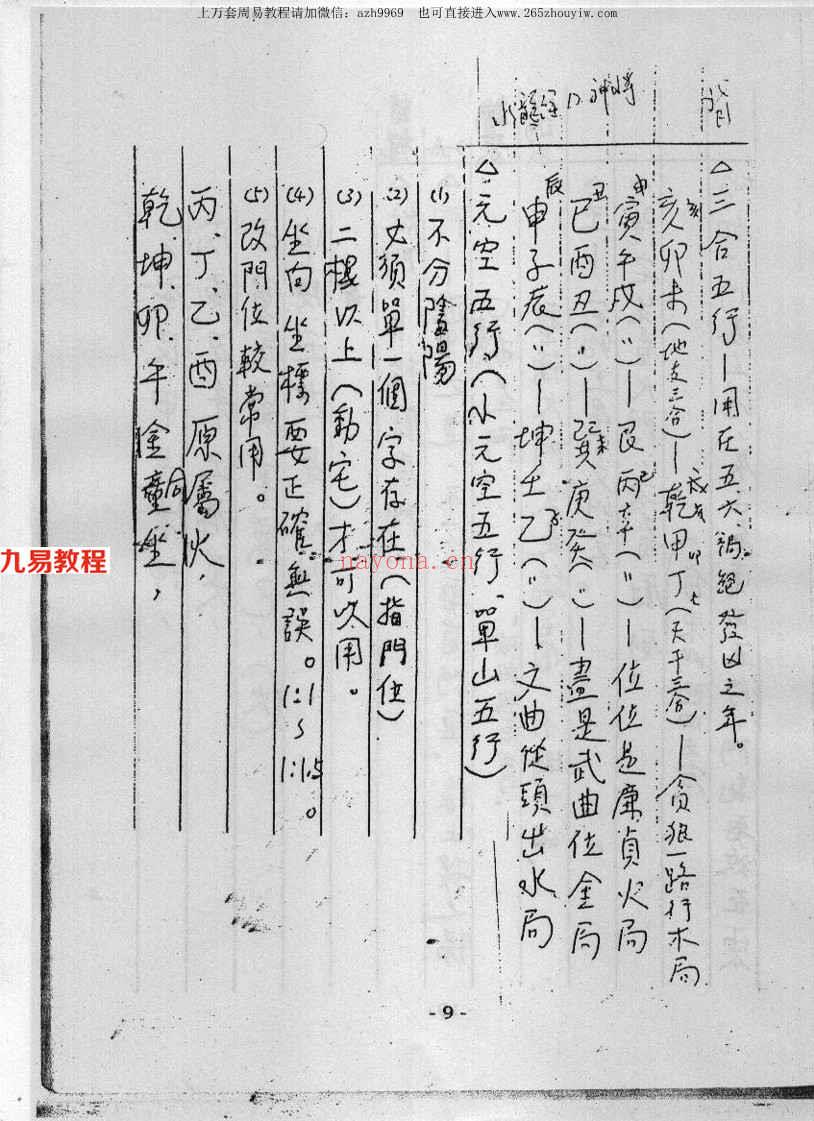 上万套周易教程请加微信：azh9969 也可直接进入www.265zhouyiw.com
水龍經 神將
△三合五行—用在五六、禍絕發凶之年。
亥卯未(地支三合)—乾甲丁(天干三合)—貪狼一路行木局
寅午戌(〃)—艮丙辛(〃)—位位是廉貞火局
巳酉丑(〃)—巽庚癸(〃)—盡是武曲位金局
申子辰(〃)—坤壬乙(〃)—文曲從頭出水局
△元空五行(小元空五行、單山五行)
(1)不分陰陽
(2)必須單一個字存在(指門位)
(3)二樓以上(動宅)才可以用。
(4)坐向坐標要正確無誤。1:1～1:1.5。
(5)改門位較常用。
丙、丁、乙、酉原屬火，
乾、坤、卯、午金同坐，
九易教程
nayona.cn
- 9 -